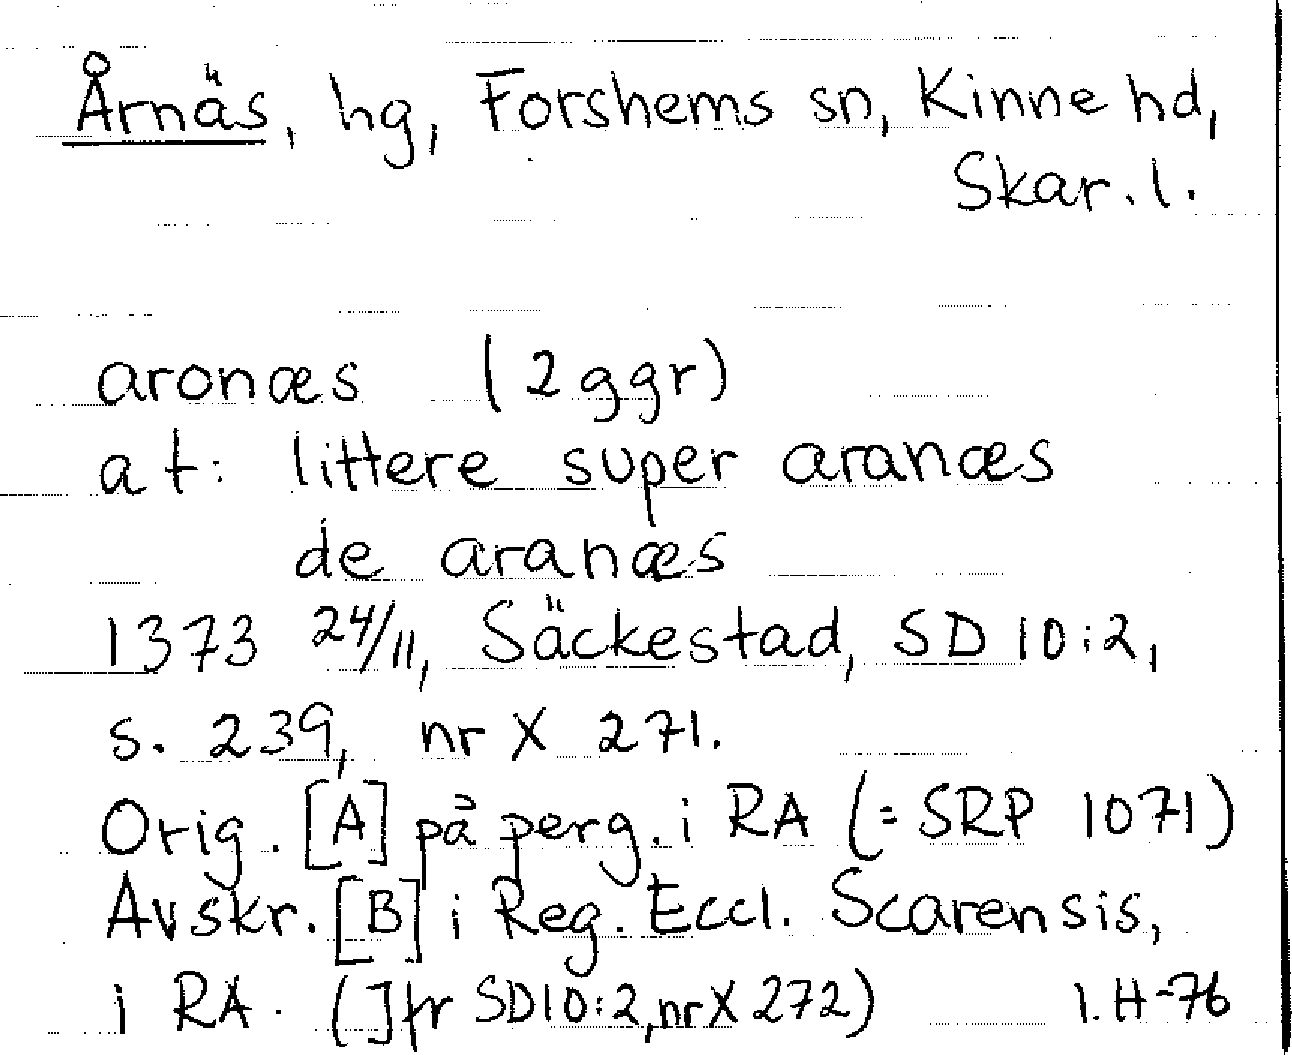 Årnäs, hg, Forshems sn, Kinne hd,
Skar. l.
aronæs (2 ggr)
at: littere super aranæs
de aranæs
1373 24/11, Säckestad, SD 10:2,
s. 239, nr X 271.
Orig. [A] på perg. i RA (= SRP 1071)
Avskr. [B] i Reg. Eccl. Scarensis,
i RA. (Jfr SD10:2, nr X 272) I. H-76